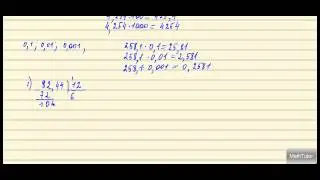 4,254·1000 = 4254
0,1; 0,01; 0,001, 258,1 · 0,1 = 25,81
258,1 · 0,01 = 2,581
258,1 · 0,001 = 0,2581
1) 82,44 | 12
72 6
104
MathTutor